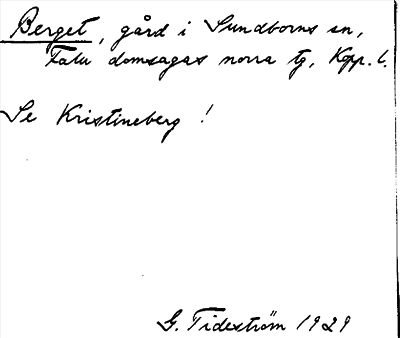 Berget, gård i Sundborns sn,
Falu domsagas norra tg, Kopp. l.
Se Kristineberg!
G. Tideström 1929